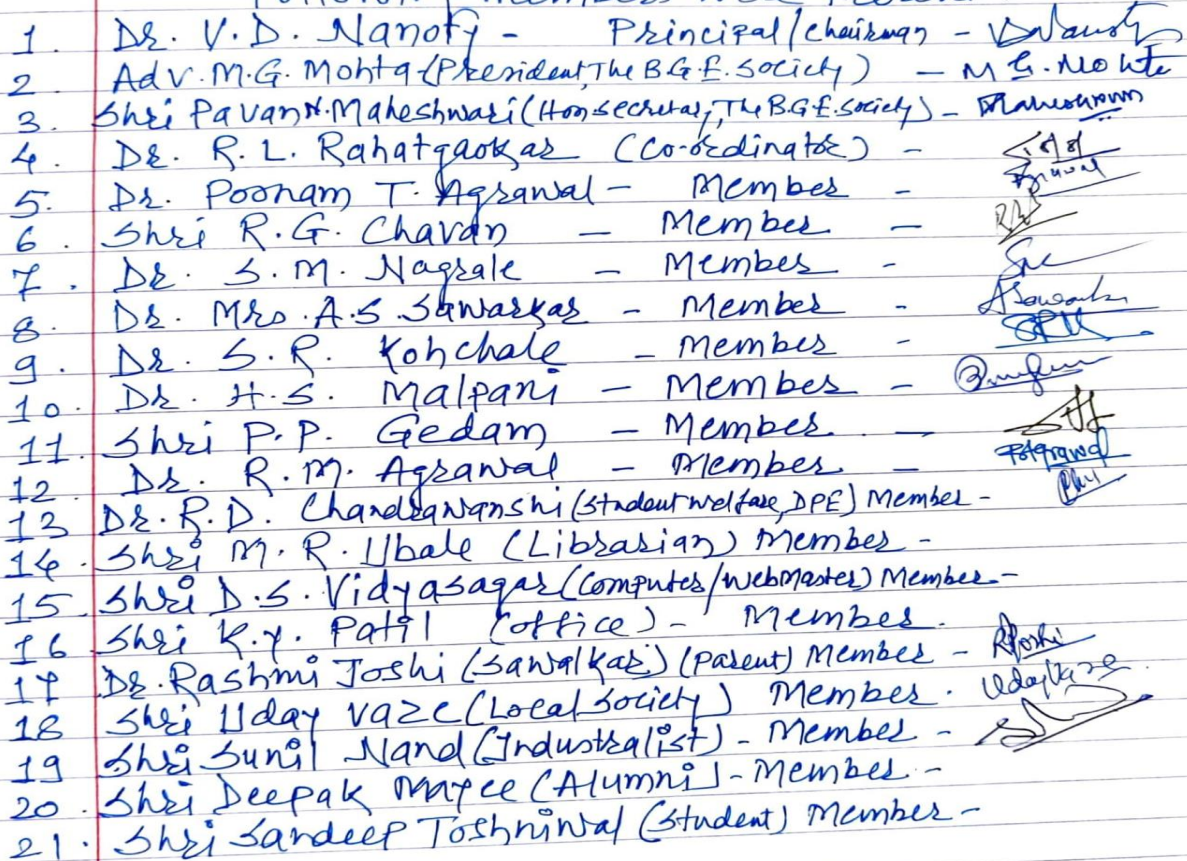 1. Dr. V.D. Nanoty - Principal/Chairman -
2 Adv. M.G. Mohta (President, The B.G.E. Society) - M G. Mohta
3. Shri Pavan N. Maheshwari (Hon secretary, The B.G.E. Society) - Maheshwari
4. Dr. R.L. Rahatgaokar (Co-ordinator) -
5. Dr. Poonam T. Agrawal - Member -
6. Shri R.G. Chavan - Member -
7. Dr. S.M. Nagrale - Member -
8. Dr. Mrs. A.S. Sawarkar - Member -
9. Dr. S.R. Kohchale - Member - SRK
10. Dr. H.S. Malpani - Member -
11. Shri P.P. Gedam - Member -
12. Dr. R.M. Agrawal - Member - Agrawal
13 Dr. R.D. Chandrawanshi (Student welfare, DPE) Member -
14. Shri M.R. Ubale (Librarian) Member -
15. Shri D.S. Vidyasagar (Computer/Webmaster) Member -
16 Shri K.Y. Patil (office) - Member.
17 Dr. Rashmi Joshi (Sawalkar) (Parent) Member - RJoshi
18 Shri Uday Vaze (Local Society) Member. Uday Vaze
19 Shri Sunil Nand (Industralist) - Member -
20. Shri Deepak Mayee (Alumni) - Member -
21. Shri Sandeep Toshniwal (Student) Member -